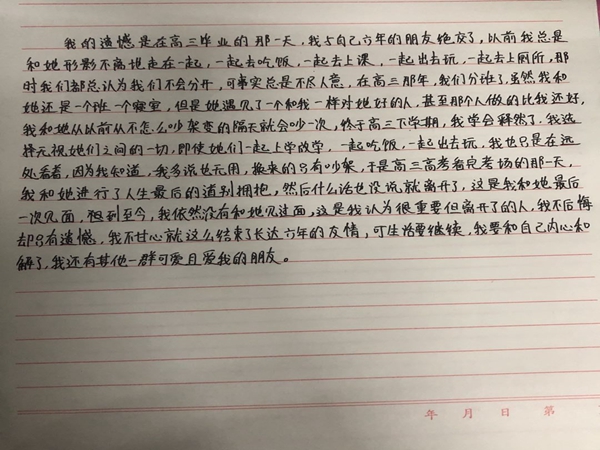 我的遗憾是在高三毕业的那一天，我与自己六年的朋友绝交了，以前我总是
和她形影不离地走在一起，一起去吃饭，一起去上课，一起出去玩，一起去上厕所，那
时我们都总认为我们不会分开，可事实总是不尽人意，在高三那年，我们分班了，虽然我和
她还是一个班一个寝室，但是她遇见了一个和我一样对她好的人，甚至那个人做的比我还好，
我和她从以前从不怎么吵架变的隔天就会吵一次，终于高三下学期，我学会释然了，我选
择无视她们之间的一切，即使她们一起上学放学，一起吃饭，一起出去玩，我也只是在远
处看着，因为我知道，我多说也无用，换来的只有吵架，于是高三高考看完考场的那一天，
我和她进行了人生最后的道别拥抱，然后什么话也没说，就离开了，这是我和她最后
一次见面，但到至今，我依然没有和她见过面，这是我认为很重要但离开了的人，我不后悔
却只有遗憾，我不甘心就这么结束了长达六年的友情，可生活要继续，我要和自己内心和
解了，我还有其他一群可爱且爱我的朋友。
年 月 日 第